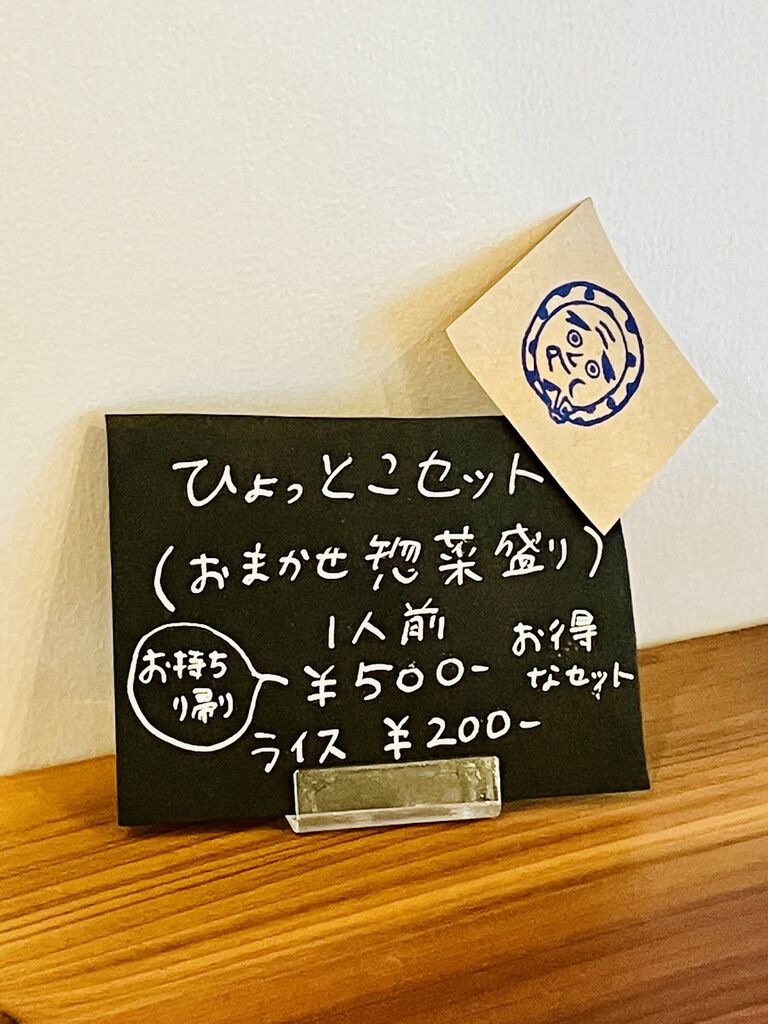 ひょっとこセット
(おまかせ惣菜盛り)
1人前
お得
なセット
お持ち
り帰り
¥500-
ライス ¥200-